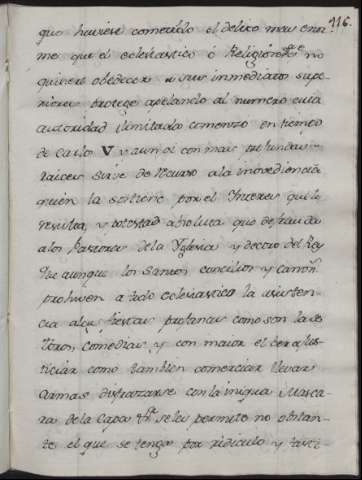 116.
que huviere cometido el delito mas enor-
me que el eclesiastico ó Religioso q.e no
quiere obedecer a sus inmediatos supe-
riores protege apelando al nuncio cuia
autoridad ilimitada comenzo en tiempo
de Carlos V y aun oi con mas profundas
raices sirve de recurso a la inovediencia
quien la sostiene por el Interes que le
resulta, y potestad absoluta que defrauda
a los Pastores de la Yglesia y decoro del Rey
Que aunque los Santos concilios y Canon.s
prohiven a todo eclesiastico la asisten-
cia a las fiestas profanas como son las de
toros, comedias y con maior el ver ajus-
ticiar como tambien comerciar llevar
armas disfrazarse con la iniqua Masca-
ra de la Capa &.a se les permite no obstan-
te el que se tenga por ridiculo y